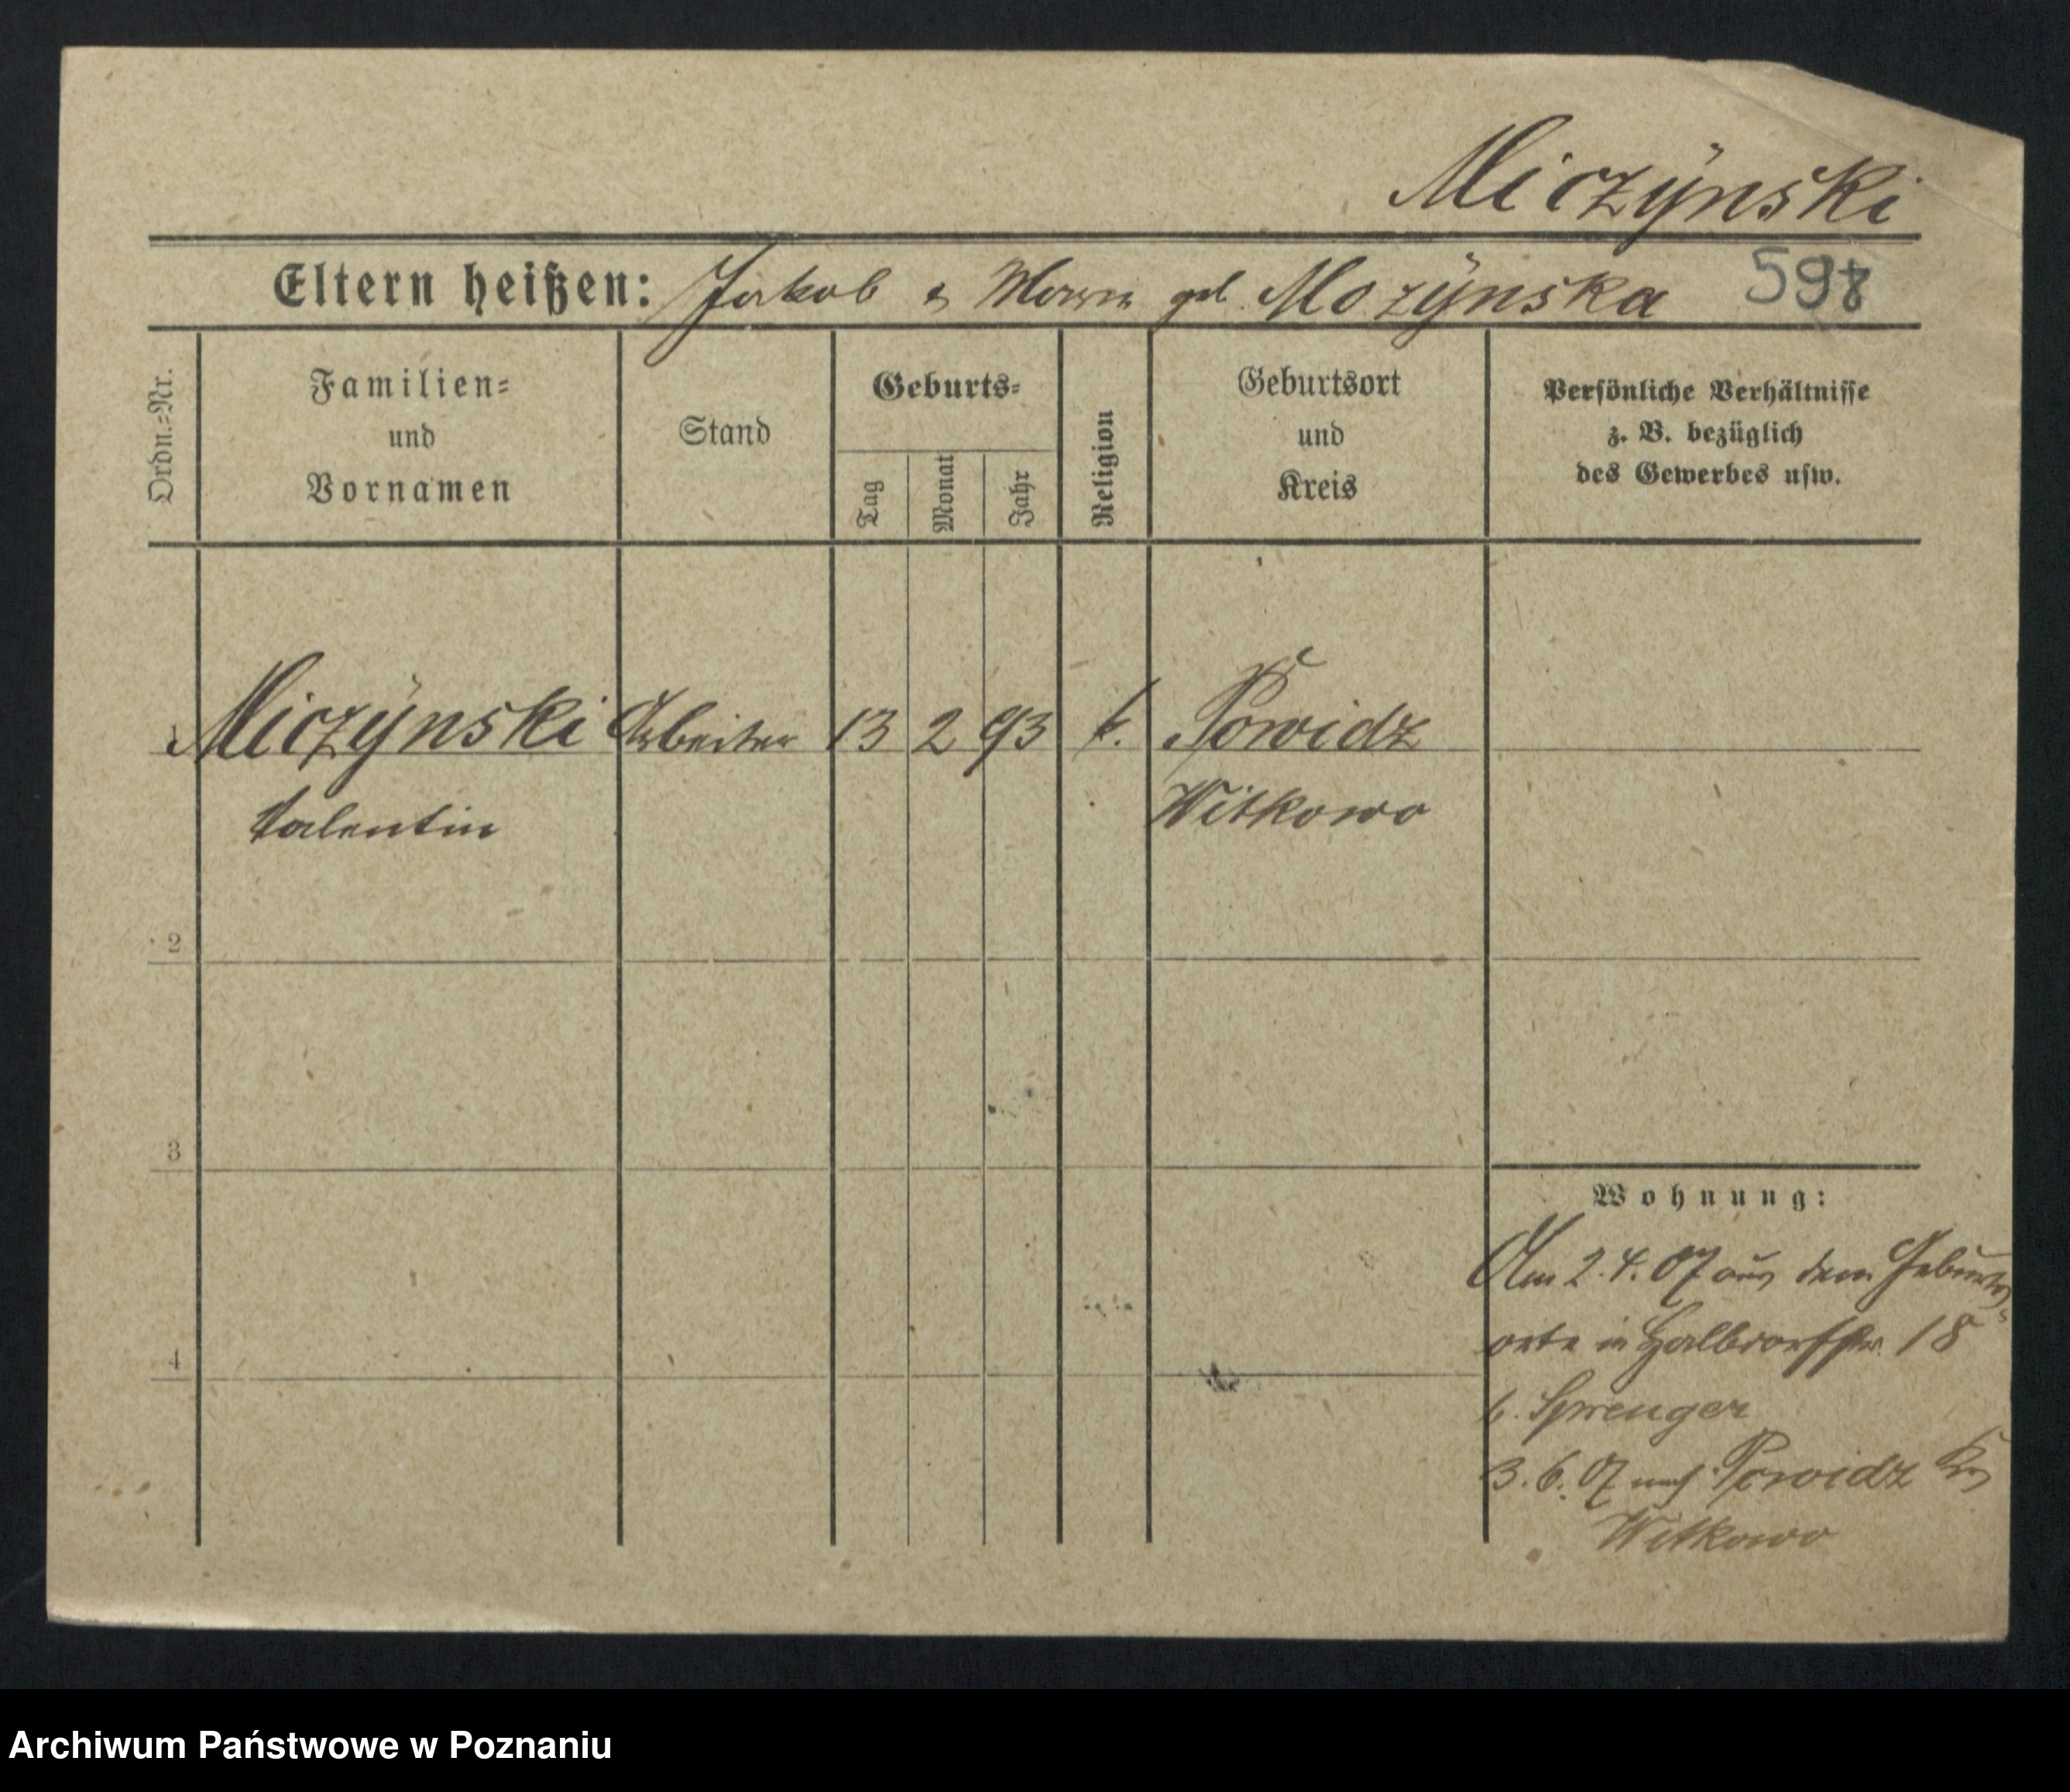 Miczÿnski
Eltern heißen: Jakob & Maria geb. Mozÿnska 598
Ordn.=Nr.
Familien=
und
Vornamen
Stand
Geburts=
Tag
Monat
Jahr
Religion
Geburtsort
und
Kreis
Persönliche Verhältnisse
z. B. bezüglich
des Gewerbes usw.
1 Miczÿnski Arbeiter 13 2 93 k. Powidz
Valentin Witkowo
2
3
Wohnung:
Am 2.4.07 aus dem Geburts-
orte in Halbdorfstr. 18
4
b. Sprenger
3.6.07 nach Powidz Krs
Witkowo
Archiwum Państwowe w Poznaniu